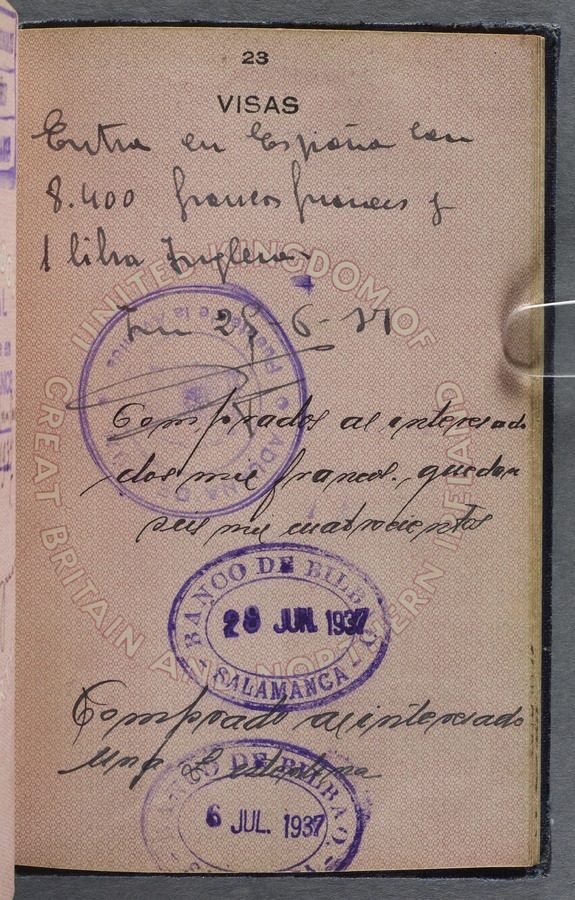 23
VISAS
Entra en España con
8.400 francos franceses y
1 libra Inglesa.
Irun 25-6-37
ADUANA DE
Puente
Comprados al interesado
dos mil francos. quedan
seis mil cuatrocientos
BANCO DE BILBAO
28 JUN. 1937
SALAMANCA
Comprado al interesado
una £ esterlina
BANCO DE BILBAO
6 JUL. 1937
UNITED KINGDOM OF
GREAT BRITAIN AND NORTHERN IRELAND